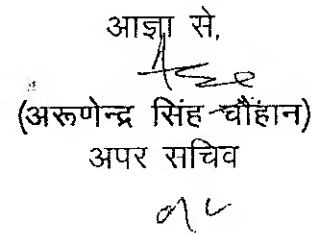 आज्ञा से,
(अरूणेन्द्र सिंह चौंहान)
अपर सचिव